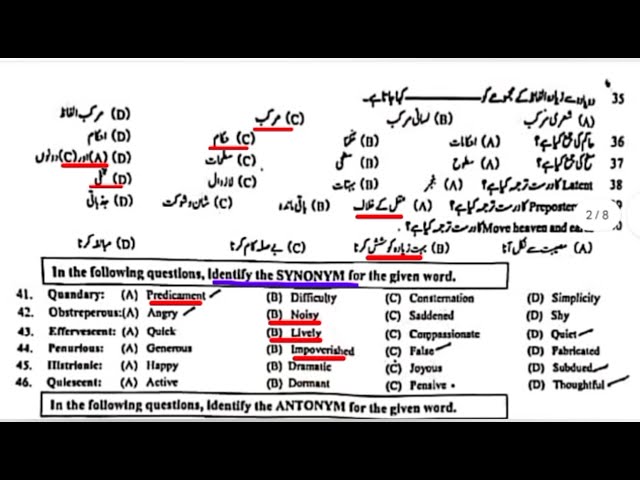 35 دو یا دو سے زیادہ الفاظ کے مجموعے کو ________ کہا جاتا ہے۔
(A) شعری مرکب (B) لسانی مرکب (C) مرکب (D) مرکب الفاظ
36 حاکم کی جمع کیا ہے؟ (A) (B) (C) حکام (D) احکام
37 سطح کی جمع کیا ہے؟ (A) سطوح (B) سطحی (C) سطحات (D) (A) اور (C) دونوں
38 Latent کا درست ترجمہ کیا ہے؟ (A) بنجر (B) بہتات (C) لازوال (D) مخفی
39 Preposter کا درست ترجمہ کیا ہے؟ (A) عقل کے خلاف (B) باقی ماندہ (C) شان و شوکت (D) جذباتی
2 / 8
Move heaven and ea کا درست ترجمہ کیا ہے؟
(A) مصیبت سے نکل آنا (B) بہت زیادہ کوشش کرنا (C) بے صلہ کام کرنا (D) مبالغہ کرنا
In the following questions, Identify the SYNONYM for the given word.
41. Quandary: (A) Predicament (B) Difficulty (C) Consternation (D) Simplicity
42. Obstreperous: (A) Angry (B) Noisy (C) Saddened (D) Shy
43. Effervescent: (A) Quick (B) Lively (C) Compassionate (D) Quiet
44. Penurious: (A) Generous (B) Impoverished (C) False (D) Fabricated
45. Histrionic: (A) Happy (B) Dramatic (C) Joyous (D) Subdued
46. Quiescent: (A) Active (B) Dormant (C) Pensive (D) Thoughtful
In the following questions, Identify the ANTONYM for the given word.